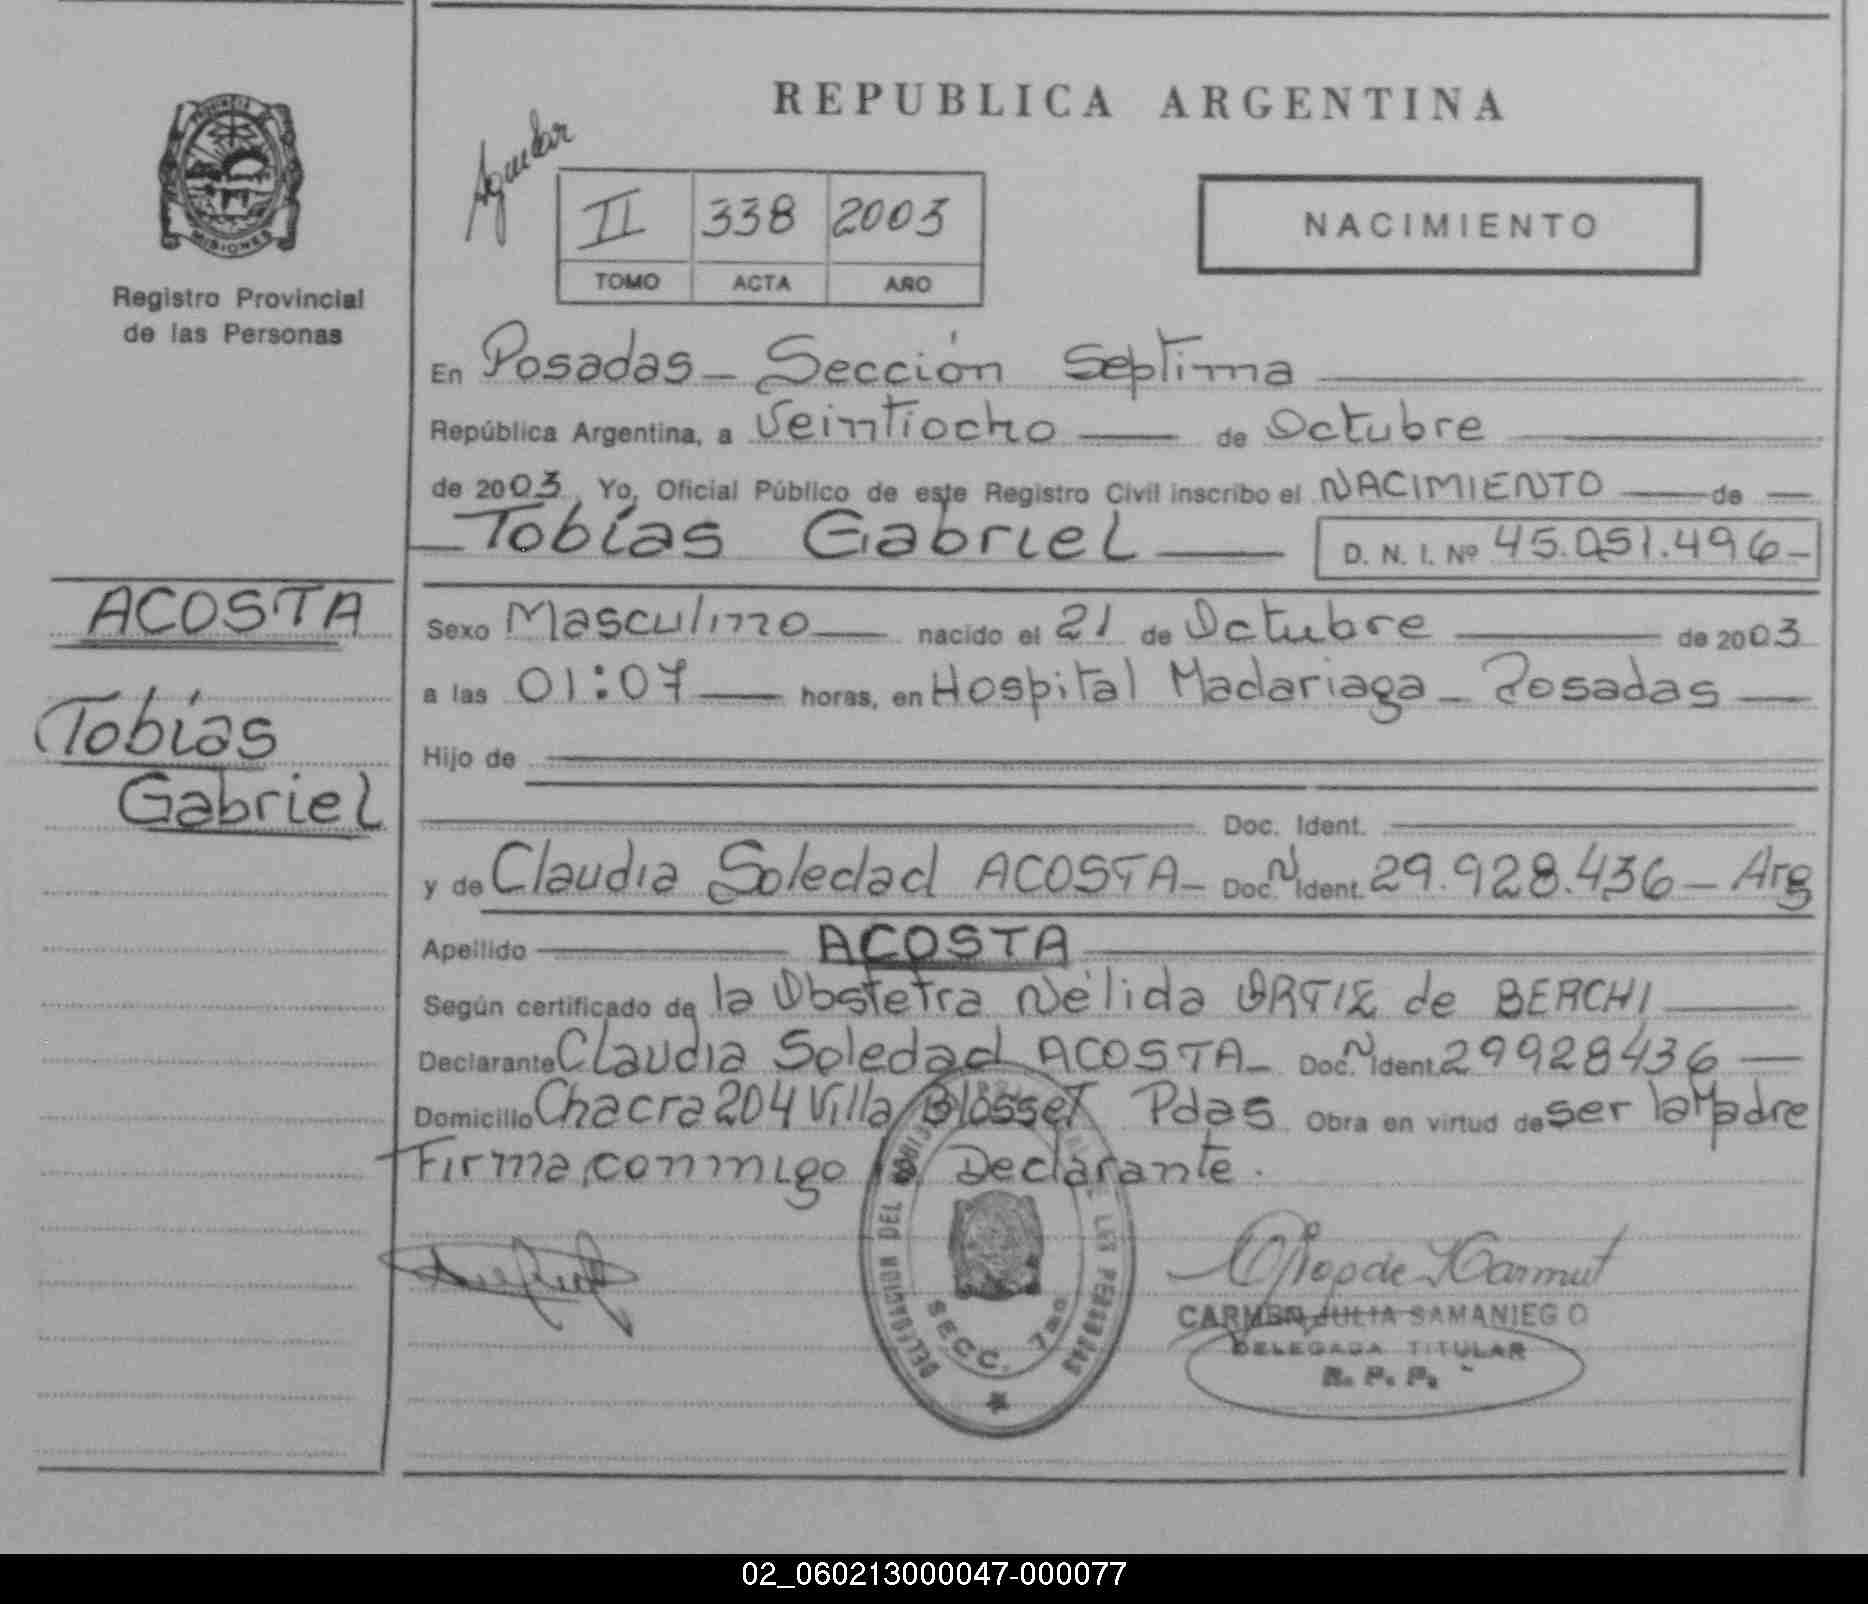 PROVINCIA
MISIONES
Registro Provincial
de las Personas
REPUBLICA ARGENTINA
Aguilar
II 338 2003
TOMO ACTA AÑO
NACIMIENTO
En Posadas - Sección Septima
República Argentina, a Veintiocho de Octubre
de 2003, Yo, Oficial Público de este Registro Civil inscribo el NACIMIENTO de
Tobías Gabriel D. N. I. Nº 45.051.496-
ACOSTA
Tobías
Gabriel
Sexo Masculino nacido el 21 de Octubre de 2003
a las 01:07 horas, en Hospital Madariaga - Posadas
Hijo de
Doc. Ident.
y de Claudia Soledad ACOSTA - Doc. N Ident. 29.928.436 - Arg
Apellido ACOSTA
Según certificado de la Obstetra Nélida ORTIZ de BERCHI
Declarante Claudia Soledad ACOSTA - Doc. N Ident. 29928436
Domicilio Chacra 204 Villa Blosset Pdas Obra en virtud de ser la Madre
Firma conmigo la Declarante.
DELEGACION DEL
PERSONAS
SECC. 7ma
CARMEN JULIA SAMANIEGO
DELEGADA TITULAR
R. P. P.
02_060213000047-000077